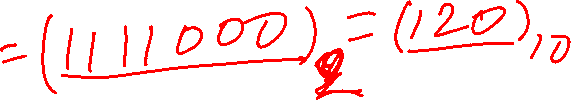 =(1111000)₂=(120)₁₀